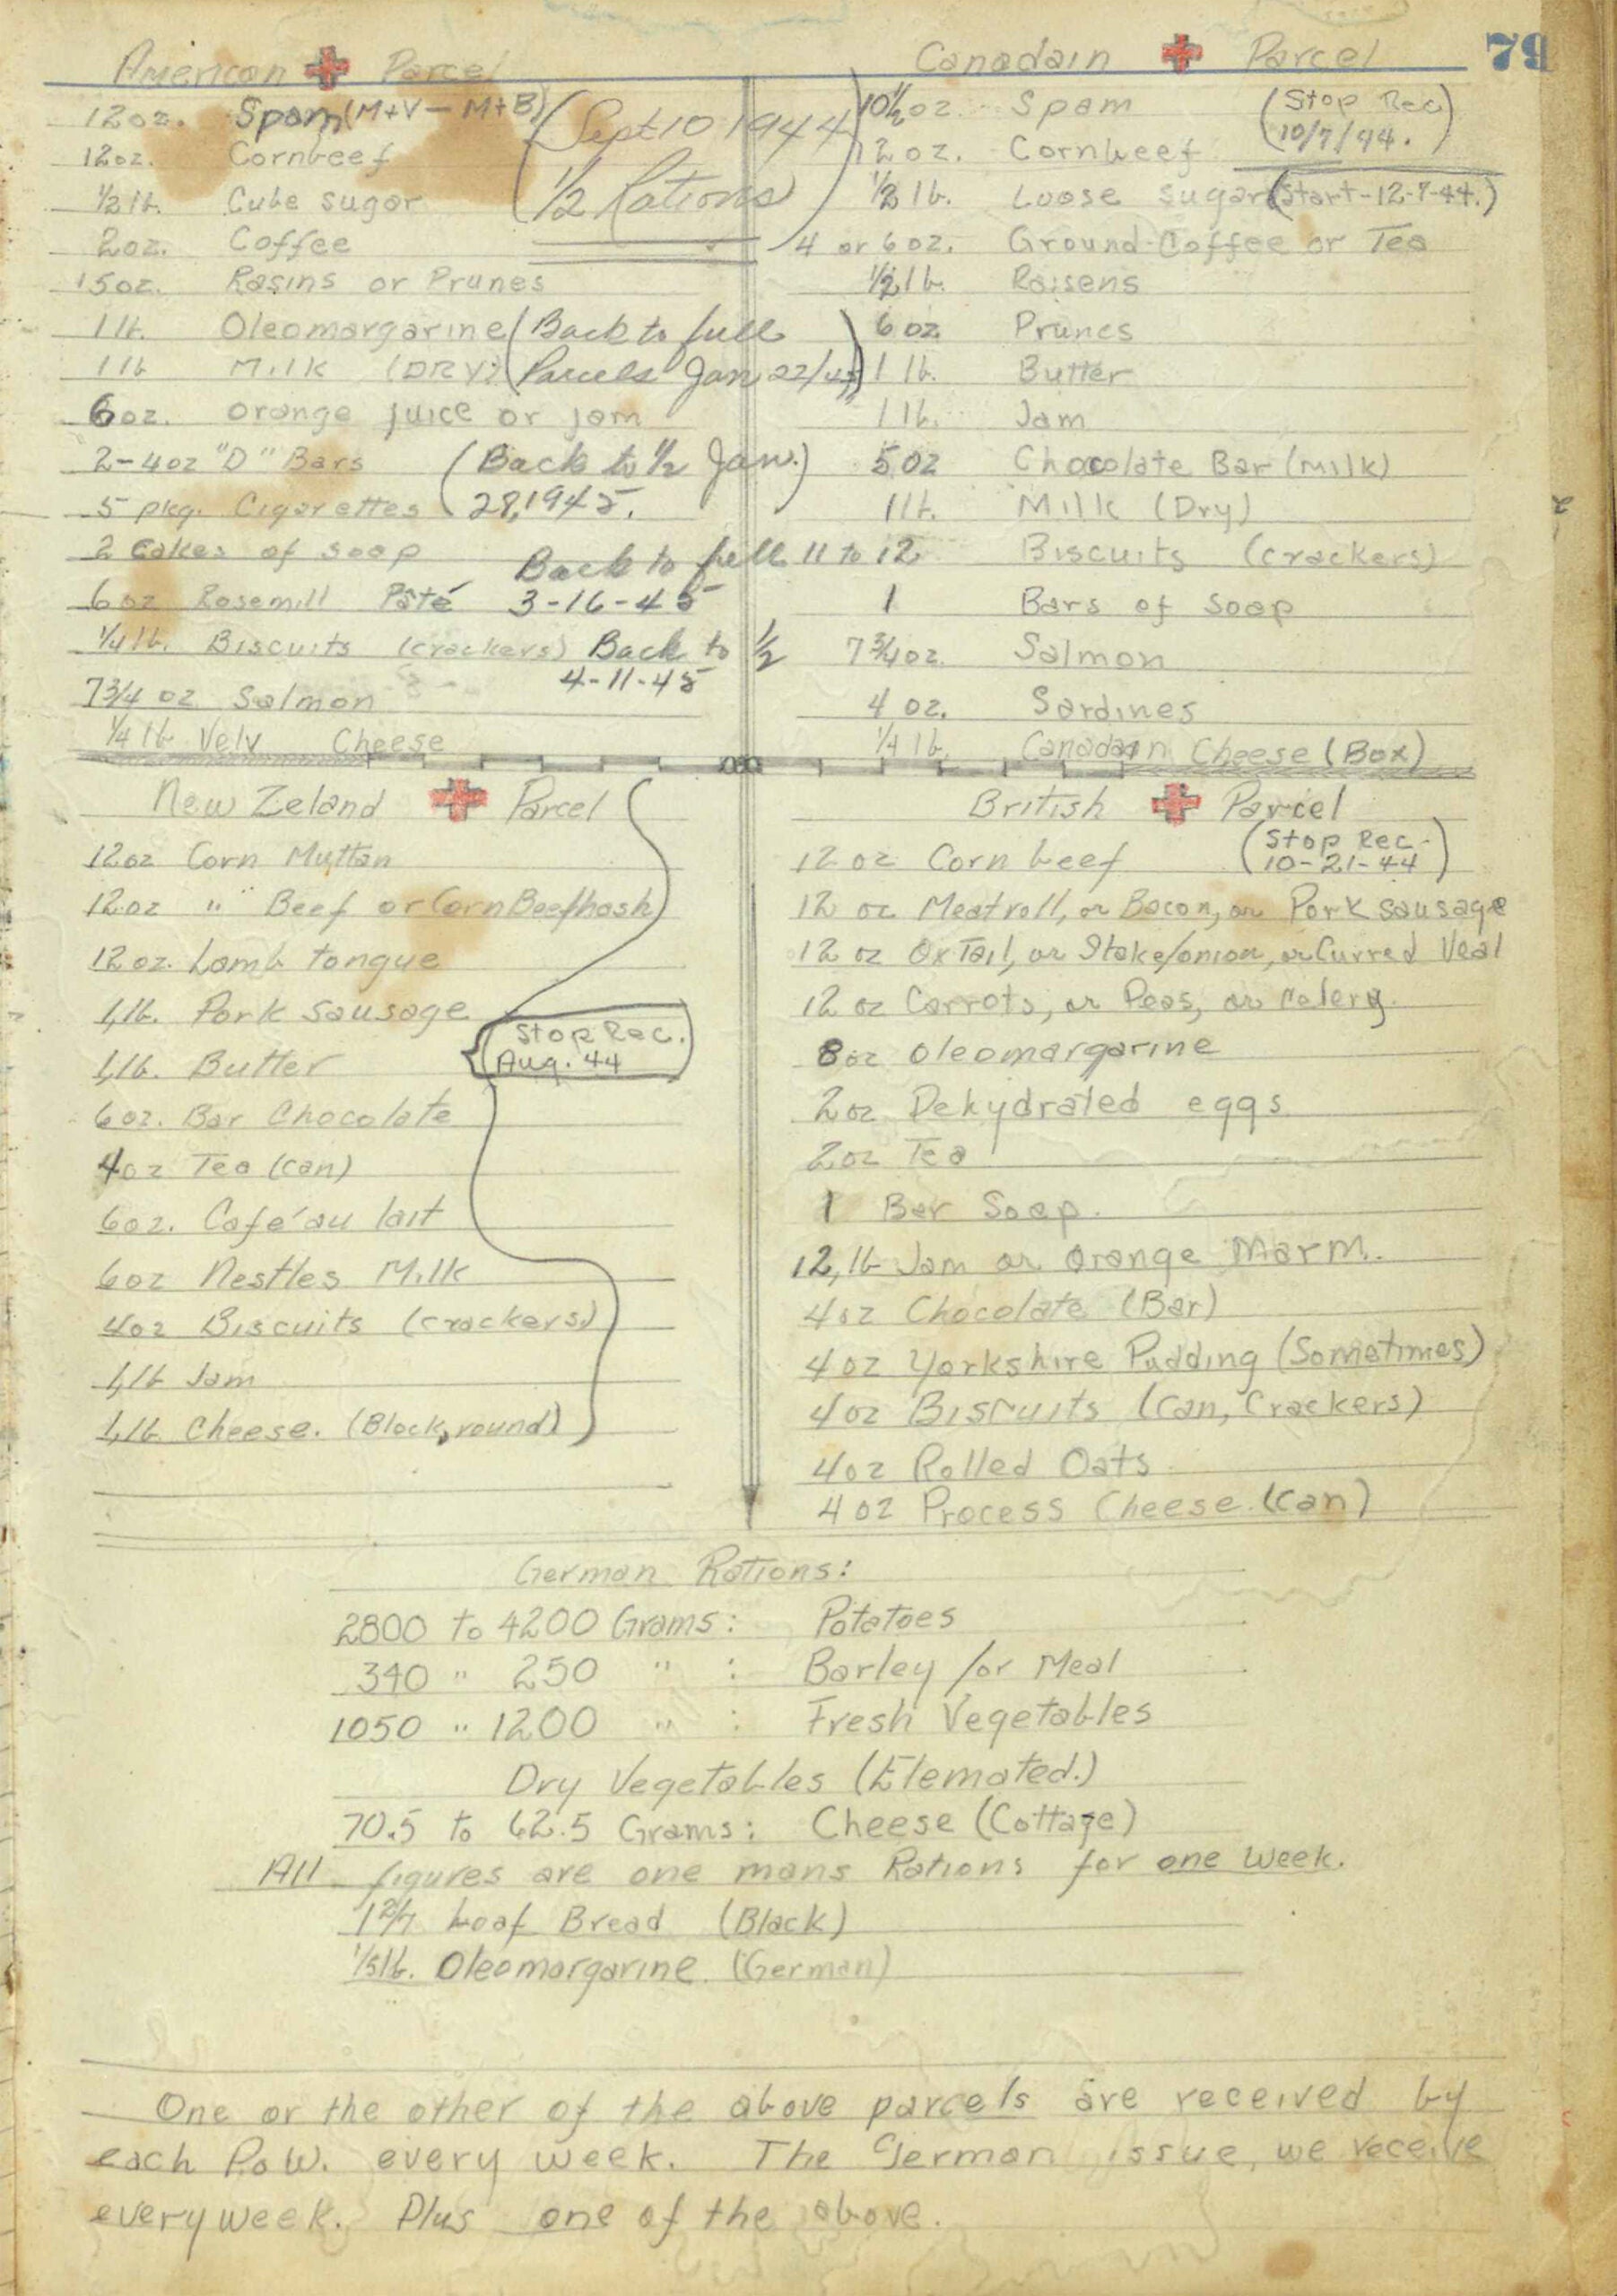 79
American + Parcel
12oz. Spam (M+V — M+B)
12oz. Cornbeef
1/2 lb. Cube sugar
2oz. Coffee
15oz. Rasins or Prunes
1 lb. Oleomargarine
1 lb Milk (DRY)
6oz. orange juice or jam
2-4oz "D" Bars
5 pkg. Cigarettes
2 Cakes of soap
6oz Rosemill Pâté
1/4 lb. Biscuits (crackers)
7 3/4 oz Salmon
1/4 lb Velv Cheese
(Sept 10 1944
1/2 Rations)
(Back to full
Parcels Jan 22/45)
(Back to 1/2 Jan.
28, 1945.)
Back to full
3-16-45
Back to 1/2
4-11-45
Canadain + Parcel
10 1/2 oz. Spam
(Stop Rec
10/7/44.)
12 oz. Cornbeef
1/2 lb. Loose sugar (Start-12-7-44.)
4 or 6 oz. Ground Coffee or Tea
1/2 lb. Raisens
6 oz Prunes
1 lb. Butter
1 lb. Jam
5 oz Chocolate Bar (milk)
1 lb. Milk (Dry)
11 to 12 Biscuits (crackers)
1 Bars of Soap
7 3/4 oz. Salmon
4 oz. Sardines
1/4 lb. Canadain Cheese (Box)
New Zeland + Parcel
12oz Corn Mutton
12oz " Beef or Corn Beef hash
12oz. Lamb tongue
1 lb. Pork Sausage
1 lb. Butter
6oz. Bar Chocolate
4oz Tea (can)
6oz. Café au lait
6oz Nestles Milk
4oz Biscuits (crackers)
1 lb Jam
1 lb Cheese. (Block, round)
Stop Rec.
Aug. 44
British + Parcel
(Stop Rec.
10-21-44)
12 oz Corn beef
12 oz Meatroll, or Bacon, or Pork Sausage
12 oz OxTail, or Stake/onion, or Curred Veal
12 oz Carrots, or Peas, or Celery
8oz Oleomargarine
2oz Dehydrated eggs
2oz Tea
1 Bar Soap.
12, lb Jam or Orange Marm.
4oz Chocolate (Bar)
4oz Yorkshire Pudding (Sometimes)
4oz Biscuits (Can, Crackers)
4oz Rolled Oats
4oz Process Cheese. (Can)
German Rations:
2800 to 4200 Grams: Potatoes
340 " 250 " : Barley /or Meal
1050 " 1200 " : Fresh Vegetables
Dry Vegetables (Elemated.)
70.5 to 62.5 Grams: Cheese (Cottage)
All figures are one mans Rations for one week.
1 2/7 Loaf Bread (Black)
1/5 lb. Oleomargarine (German)
One or the other of the above parcels are received by
each P.o.W. every week. The German issue, we receive
every week. Plus one of the above.